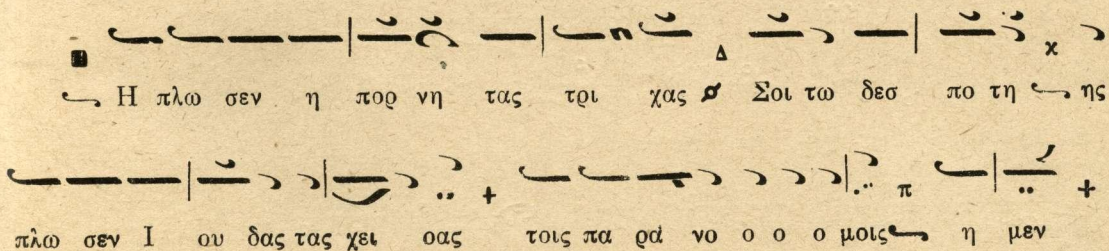 Η πλω σεν η πορ νη τας τρι χας Σοι τω δεσ πο τη ης
πλω σεν Ι ου δας τας χει ρας τοις πα ρα νο ο ο ο μοις η μεν